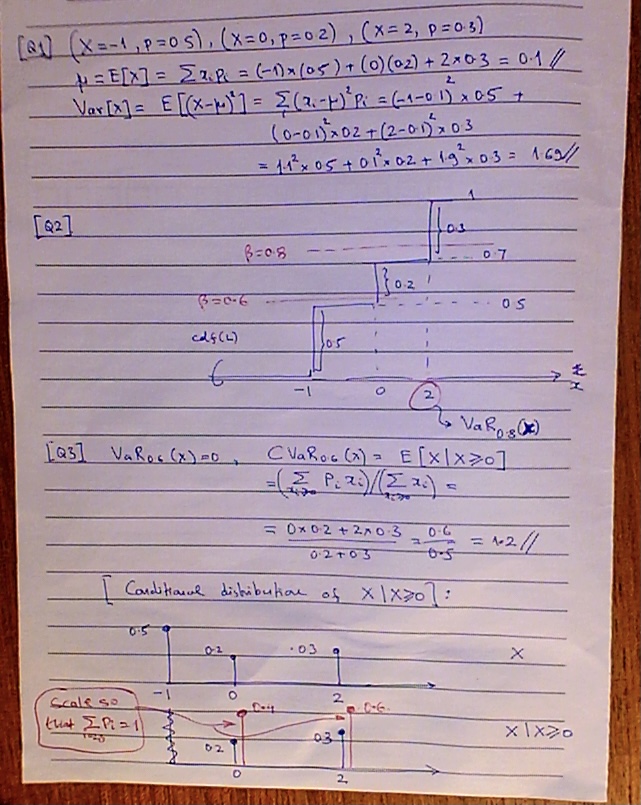 [Q1] (X=-1, p=0.5), (X=0, p=0.2), (X=2, p=0.3)
μ = E[X] = Σxipi = (-1)×(0.5) + (0)(0.2) + 2×0.3 = 0.1 //
Var[X] = E[(X-μ)²] = Σ(xi-μ)²Pi = (-1-0.1)² × 0.5 +
(0-0.1)²×0.2 + (2-0.1)²×0.3
= 1.1²×0.5 + 0.1²×0.2 + 1.9²×0.3 = 1.69 //
[Q2]
1
0.3
β=0.8
0.7
0.2
β=0.6
0.5
cdf(L)
0.5
-1 0 2 x
VaR0.8(X)
[Q3] VaR0.6(X)=0, CVaR0.6(X) = E[X|X≥0]
= (Σ xi≥0 Pi xi)/(Σ xi≥0 xi) =
= 0×0.2 + 2×0.3 / 0.2+0.3 = 0.6 / 0.5 = 1.2 //
[Conditional distribution of X|X≥0]:
0.5 0.2 0.3 X
-1 0 2
Scale so that ΣPi=1
0.4 0.6
0.2 0.3 X|X≥0
0 2